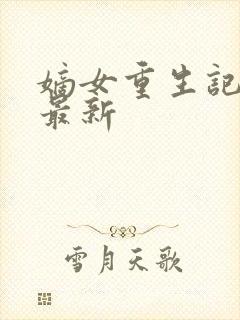 嫡女重生記
最新
雪月天歌